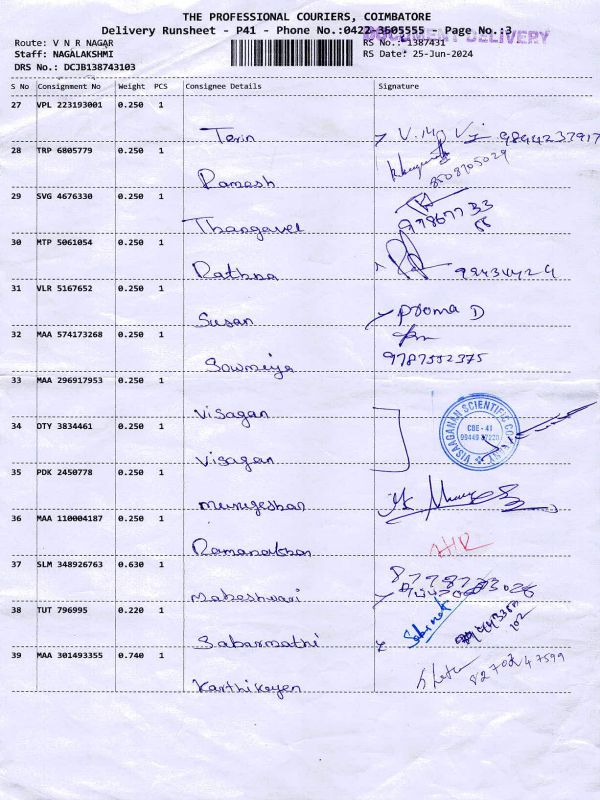 THE PROFESSIONAL COURIERS, COIMBATORE
Delivery Runsheet - P41 - Phone No.:0422-3605555 - Page No.:3
DOCUMENT DELIVERY
Route: V N R NAGAR
RS No.: 1387431
Staff: NAGALAKSHMI
RS Date: 25-Jun-2024
DRS No.: DCJB138743103
S No Consignment No Weight PCS Consignee Details Signature
27 VPL 223193001 0.250 1
Terin
28 TRP 6805779 0.250 1
Ramesh 8508705029
29 SVG 4676330 0.250 1
Thangavel
30 MTP 5061054 0.250 1
Rathna
31 VLR 5167652 0.250 1
Susan
32 MAA 574173268 0.250 1
Sowmiya 9787552375
33 MAA 296917953 0.250 1
Visagan
34 DTY 3834461 0.250 1
VISAAGANAN SCIENTIFIC
CBE - 41
Visagan
35 PDK 2450778 0.250 1
Murugeshan
36 MAA 110004187 0.250 1
Ramanathan
37 SLM 348926763 0.630 1
Maheshwari
38 TUT 796995 0.220 1
Sabarmathi
39 MAA 301493355 0.740 1
Karthikeyen 8270247599